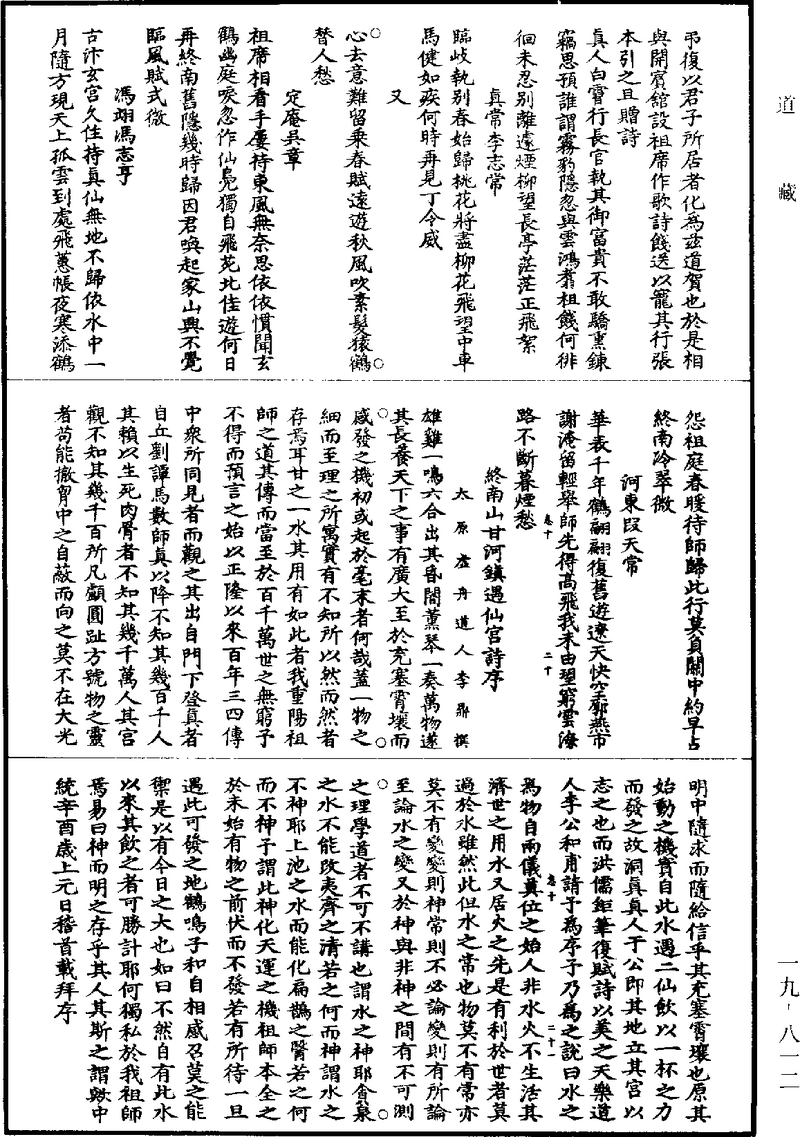 道藏
弔復以君子所居者化為茲道賀也於是相
與開賓館設祖席作歌詩餞送以寵其行張
本引之且贈詩
真人白霄行長官執其御富貴不敢驕熏鍊
竊思預誰謂霧豹隱忽與雲鴻翥祖餞何徘
徊未忍別離遠煙柳望長亭茫茫正飛絮
真常李志常
臨岐執別春始歸桃花將盡柳花飛望中車
馬健如疾何時再見丁令威
又
心去意難留乘春賦遠遊秋風吹素髮猿鶴
替人愁
定庵吳章
祖席相看手屢持東風無奈思依依慣聞玄
鶴幽庭唳忽作仙鳧獨自飛苑北佳遊何日
再終南舊隱幾時歸因君喚起家山興不覺
臨風賦式微
馮翊馮志亨
古汴玄宮久住持真仙無地不歸依水中一
月隨方現天上孤雲到處飛蕙帳夜寒添鶴
怨祖庭春暖待師歸此行莫負關中約早占
終南冷翠微
河東段天常
華表千年鶴翩翩復舊遊遼天快空廓燕市
謝淹留輕舉師先得高飛我未由望窮雲海
路不斷暮煙愁
卷十
二十
終南山甘河鎮遇仙宮詩序
太原虛舟道人李鼎撰
雄雞一鳴六合出其昏闇薰琴一奏萬物遂
其長養天下之事有廣大至於充塞霄壤而
感發之機初或起於毫末者何哉蓋一物之
細而至理之所寓實有不知所以然而然者
存焉耳甘之一水其用有如此者我重陽祖
師之道其傳而當至於百千萬世之無窮予
不得而預言之始以正隆以來百年三四傳
中衆所同見者而觀之其出自門下登真者
自丘劉譚馬數師真以降不知其幾百千人
其賴以生死肉骨者不知其幾千萬人其宮
觀不知其幾千百所凡顱圓趾方號物之靈
者苟能撤胷中之自蔽而向之莫不在大光
明中隨求而隨給信乎其充塞霄壤也原其
始動之機實自此水遇二仙飲以一杯之力
而發之故洞真真人于公即其地立其宮以
志之也而洪儒鉅筆復賦詩以美之天樂道
人李公和甫請予為序予乃為之說曰水之
卷十
二十一
為物自兩儀奠位之始人非水火不生活其
濟世之用水又居火之先是有利於世者莫
過於水雖然此但水之常也物莫不有常亦
莫不有變變則神常則不必論變則有所論
至論水之變又於神與非神之間有不可測
之理學道者不可不講也謂水之神耶貪泉
之水不能改夷齊之清若之何而神謂水之
不神耶上池之水而能化扁鵲之腎若之何
而不神予謂此神化天運之機祖師本全之
於未始有物之前伏而不發若有所待一旦
遇此可發之地鶴鳴子和自相感召莫之能
禦是以有今日之大也如曰不然自有此水
以來其飲之者可勝計耶何獨私於我祖師
焉易曰神而明之存乎其人其斯之謂歟中
統辛酉歲上元日稽首載拜序
一九-八一二